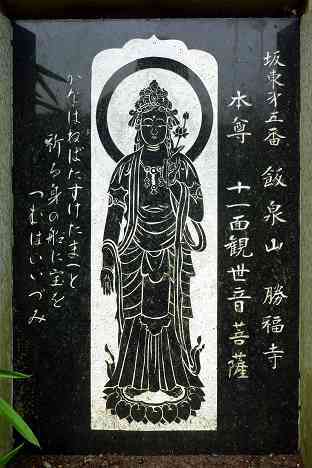 坂東才五番 飯泉山 勝福寺
本尊 十一面観世音菩薩
かなはねばたすけたまへと
祈る身の船に宝を
つむはいいづみ